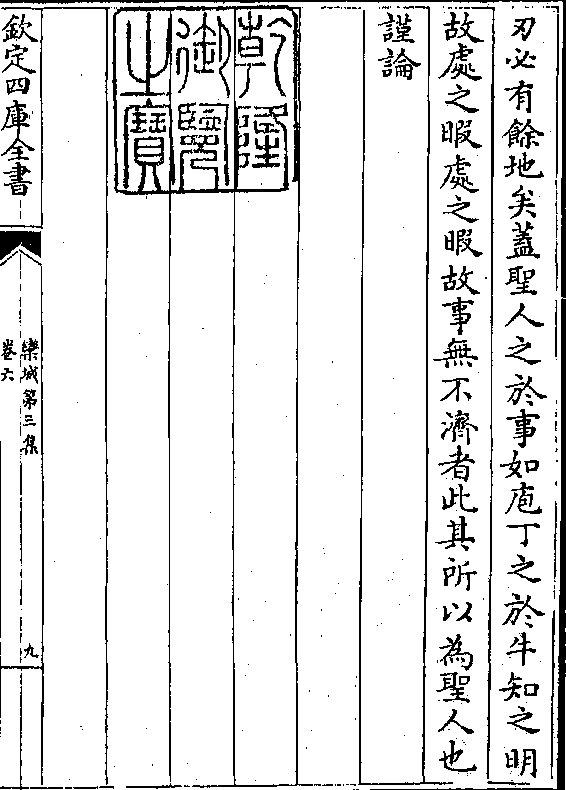 刃必有餘地矣蓋聖人之於事如庖丁之於牛知之明
故處之暇處之暇故事無不濟者此其所以為聖人也
謹論
乾隆
御覽
之寶
欽定四庫全書
欒城第三集
卷六
九